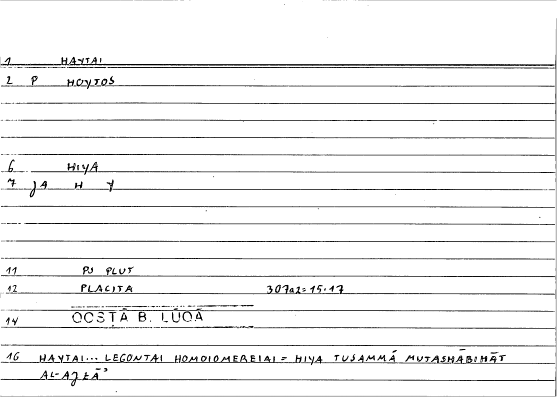 1 HAYTAI
2 P HOYTOS
6 HIYA
7 JA H Y
11 PS PLUT
12 PLACITA 307a2=15.17
14 QOSṬĀ B. LŪQĀ
16 HAYTAI... LEGONTAI HOMOIOMEREIAI = HIYA TUSAMMĀ MUTASHĀBIHĀT
AL-AJZĀʾ